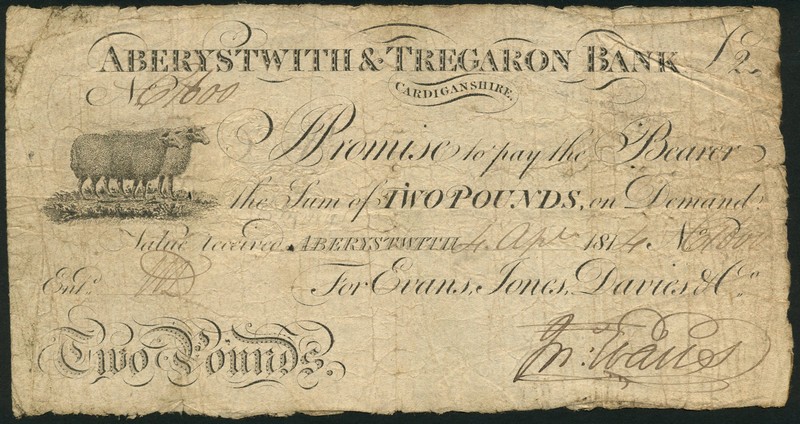 ABERYSTWITH & TREGARON BANK £2
CARDIGANSHIRE.
No 600
I Promise to pay the Bearer
the Sum of TWO POUNDS, on Demand
Value received. ABERYSTWITH 4 Apl 1814 No
Entd.
For Evans, Jones, Davies & Co.
Two Pounds.
Jn: Evans